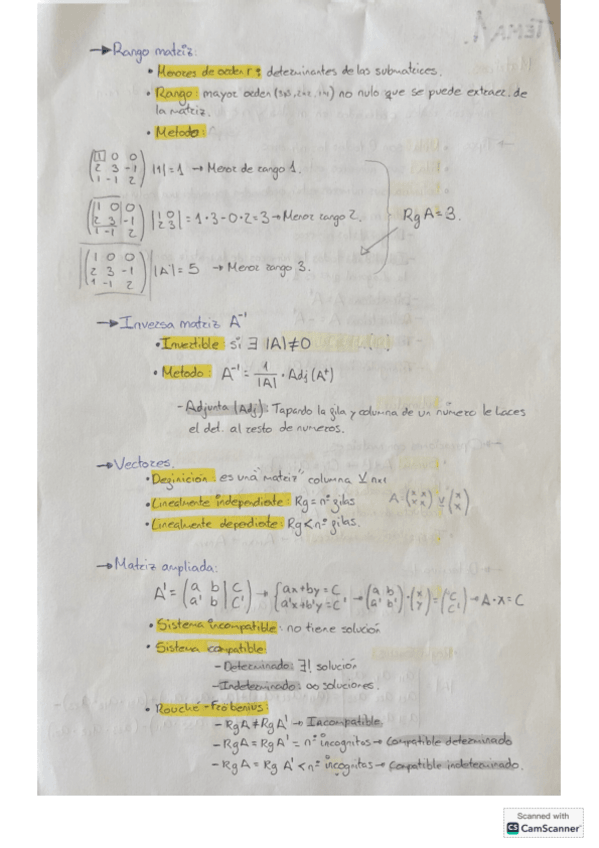 TEMA 1.
→ Rango matriz:
• Menores de orden r: determinantes de las submatrices.
• Rango: mayor orden (3x3, 2x2, 1x1) no nulo que se puede extraer de
la matriz.
• Metodo:
(1 0 0 / 2 3 -1 / 1 -1 2) |1| = 1 → Menor de rango 1.
(1 0 0 / 2 3 -1 / 1 -1 2) |1 0 / 2 3| = 1·3-0·2=3 → Menor rango 2. Rg A=3.
|(1 0 0 / 2 3 -1 / 1 -1 2)| |A| = 5 → Menor rango 3.
→ Inversa matriz A⁻¹
• Invertible: si ∃ |A|≠0
• Metodo: A⁻¹ = 1/|A| · Adj (Aᵗ)
- Adjunta (Adj): Tapando la fila y columna de un número le haces
el det. al resto de numeros.
→ Vectores.
• Definición: es una "matriz" columna V nx1
• Linealmente independiente: Rg = nº filas A·(x x / x x) V (x / x)
• Linealmente dependiente: Rg < nº filas.
→ Matriz ampliada:
A' = (a b | c / a' b' | c') → {ax+by=c / a'x+b'y=c' → (a b / a' b')·(x / y)=(c / c') → A·X=C
• Sistema incompatible: no tiene solución
• Sistema compatible:
- Determinado: ∃! solución
- Indeterminado: ∞ soluciones.
• Rouché-Frobenius:
- Rg A ≠ Rg A' → Incompatible.
- Rg A = Rg A' = nº incognitas → Compatible determinado
- Rg A = Rg A' < nº incógnitas → Compatible indeterminado.
Scanned with
CS CamScanner